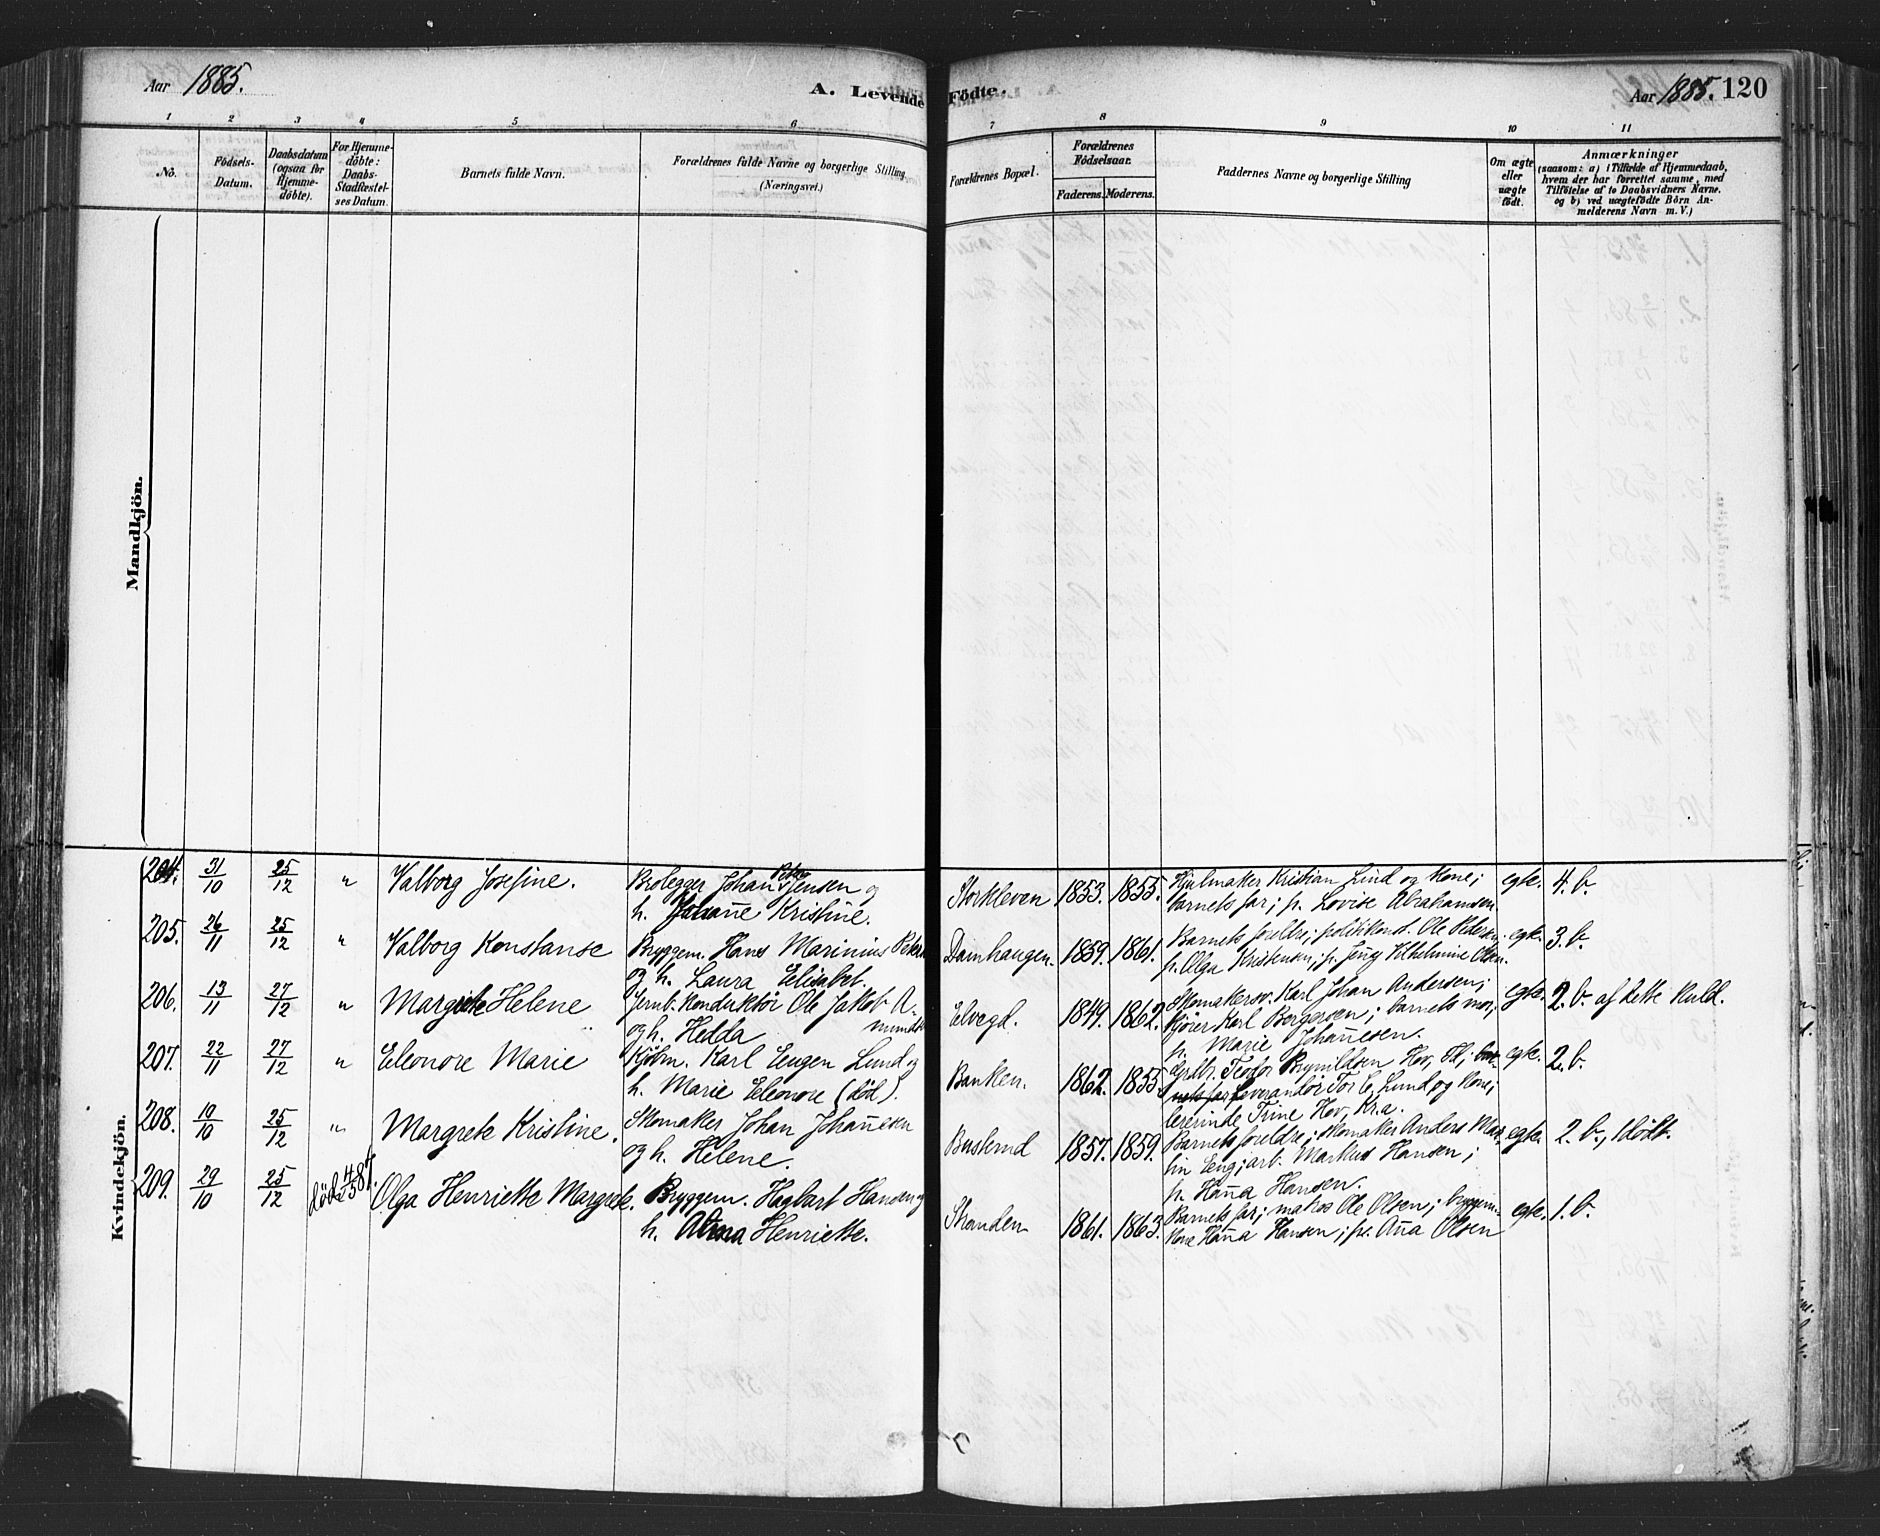 Aar 1885.
A. Levende Fødte.
Aar 1885. 120
1 2 3 4 5 6 7 8 9 10 11
No.
Födsels-Datum.
Daabsdatum (ogsaa for Hjemmedöbte).
For Hjemmedöbte: Daabs-Stadfæstelses Datum.
Barnets fulde Navn.
Forældrenes fulde Navne og borgerlige Stilling (Næringsvei.)
Forældrenes Bopæl.
Forældrenes Födselsaar.
Faderens. Moderens.
Faddernes Navne og borgerlige Stilling
Om ægte eller uægte födt.
Anmærkninger
(saasom: a) i Tilfælde af Hjemmedaab,
hvem der har forrettet samme, med
Tilföielse af to Daabsvidners Navne.
og b) ved uægtefödte Börn Anmelderens Navn m. V.)
Mandkjön.
Kvindekjön.
204. 31/10 25/12 " Valborg Josefine. Brolegger Johan Peter Jensen og
h. Johan̄e Kristine. Storkleven 1853. 1855. Hjulmaker Kristian Lind og kone;
barnets far; p. Lovise Abrahamsen. egte. 4. b.
205. 26/11 25/12 " Valborg Konstanse Bryggem. Hans Marinius Petersen
og h. Laura Elisabet. Damhaugen. 1859. 1861. Barnets foreldre; politikonst. Ole Pedersen.
p. Olga Kristensen; p. Jeny Vilhelmine Olsen. egte. 3. b.
206. 13/11 27/12 " Margrete Helene Jernb. Konduktør Ole Jakob A-
mundsen
og h. Hedda Elvegd. 1849. 1862. Skomakersv. Karl Johan Andersen;
kjører Karl Borgersen; barnets mor;
p. Marie Johan̄esen. egte. 2. b. af dette kuld.
207. 22/11 27/12 " Eleonore Marie Kjøbm. Karl Eugen Lund og
h. Marie Eleonore (død). Banken. 1862. 1855. Grdbr. Teodor Brynildsen Hov, bar-
nets far, Leverandør Tor C. Lund og kone;
lererinde Trine Hov, Kr.a. egte. 2. b.
208. 19/10 25/12 " Margrete Kristine. Skomaker Johan Johan̄esen
og h. Helene. Buskerud 1857. 1859. Barnets foreldre; skomaker Anders Mar-
tin Eng; arb. Markus Hansen;
p. Han̄a Hansen. egte. 2. b., 1 dødt.
209. 29/10 25/12 døde 4/5 87. Olga Henriette Margrete. Bryggem. Hagbart Hansen og
h. Alma Henriette. Stranden 1861. 1863. Barnets far; matros Ole Olsen; bryggem.
kone Han̄a Hansen; p. An̄a Olsen egte. 1. b.